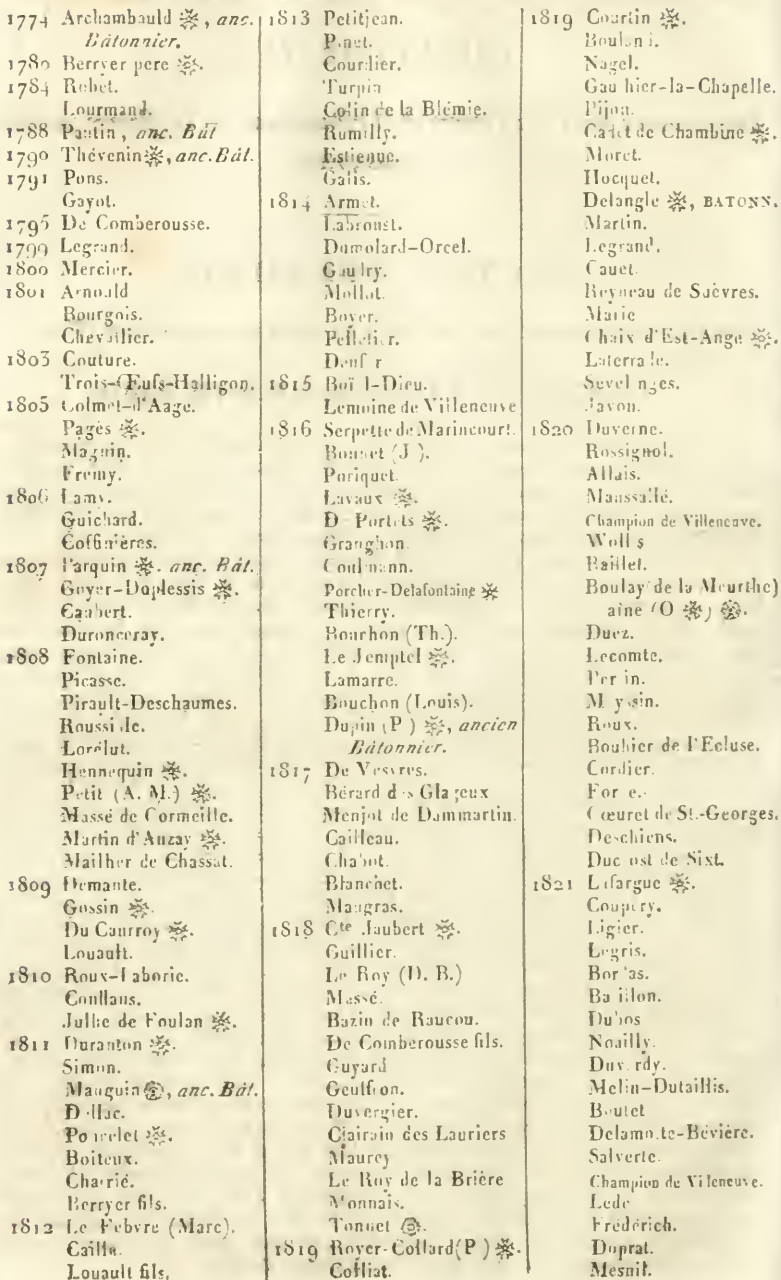 1774 Archambauld ※, anc.
Bâtonnier.
1780 Berryer pere ※.
1784 Robet.
Lourmand.
1788 Pantin, anc. Bât
1790 Thévenin ※, anc. Bât.
1791 Pons.
Gayot.
1795 De Comberousse.
1799 Legrand.
1800 Mercier.
1801 Arnould
Bourgois.
Chevallier.
1803 Couture.
Trois-Œufs-Halligon.
1805 Colmet-d'Aage.
Pagès ※.
Magnin.
Fremy.
1806 Lamy.
Guichard.
Coffinières.
1807 Parquin ※. anc. Bât.
Goyer-Duplessis ※.
Caubert.
Duronceray.
1808 Fontaine.
Picasse.
Pirault-Deschaumes.
Lorélut.
Hennequin ※.
Petit (A. M.) ※.
Massé de Cormeille.
Martin d'Anzay ※.
Mailher de Chassat.
1809 Demante.
Gossin ※.
Du Caurroy ※.
Louault.
1810 Roux-Laborie.
Conflans.
Julhe de Foulan ※.
1811 Duranton ※.
Simon.
Mauguin, anc. Bât.
Poncelet ※.
Boiteux.
Charrié.
Berryer fils.
1812 Le Febvre (Marc).
Caille.
Louault fils.
1813 Petitjean.
Pinet.
Courdier.
Turpin
Colin de la Blémie.
Rumilly.
Estienne.
Galis.
1814 Armet.
Labroust.
Dumolard-Orcel.
Gaudry.
Mollot.
Boyer.
Pelletier.
1815 Boïel-Dieu.
Lemoine de Villeneuve
1816 Serpette de Marincourt.
Bonnet (J ).
Poriquet.
Lavaux ※.
De Portets ※.
Granghon
Coulmann.
Porcher-Delafontaine ※
Thierry.
Bourbon (Th.).
Le Jemptel ※.
Lamarre.
Bouchon (Louis).
Dupin (P ) ※, ancien
Bâtonnier.
1817 De Vesvres.
Bérard des Glajeux
Menjot de Dammartin.
Cailleau.
Chabot.
Blanchet.
Maugras.
1818 Cte Jaubert ※.
Guillier.
Le Roy (D. B.)
Massé.
Bazin de Raucou.
De Comberousse fils.
Guyard
Geuffron.
Duvergier.
Clairain des Lauriers
Maurey
Le Roy de la Brière
Monnais.
Tonnet
1819 Royer-Collard (P ) ※.
Colliat.
1819 Courtin ※.
Nagel.
Gauthier-la-Chapelle.
Pijon.
Cadet de Chambine ※.
Moret.
Hocquet.
Delangle ※, BATONN.
Martin.
Legrand.
Cauet.
Reyneau de Suèvres.
Marie
Chaix d'Est-Ange ※.
Laterrade.
Sevelinges.
Javon.
1820 Duverne.
Rossignol.
Allais.
Maussallé.
Champion de Villeneuve.
Wollis
Baillet.
Boulay de la Meurthe)
aîné (O ※)
Duez.
Lecomte.
Perrin.
Roux.
Bouhier de l'Ecluse.
Cordier.
Cœuret de St.-Georges.
Deschiens.
Ducrost de Sixt.
1821 Lafargue ※.
Coupery.
Ligier.
Legris.
Bordas.
Baillon.
Dubos
Noailly.
Duverdy.
Melin-Dutaillis.
Boutet
Delamotte-Bévière.
Salverte.
Champion de Villeneuve.
Frédérich.
Duprat.
Mesnil.